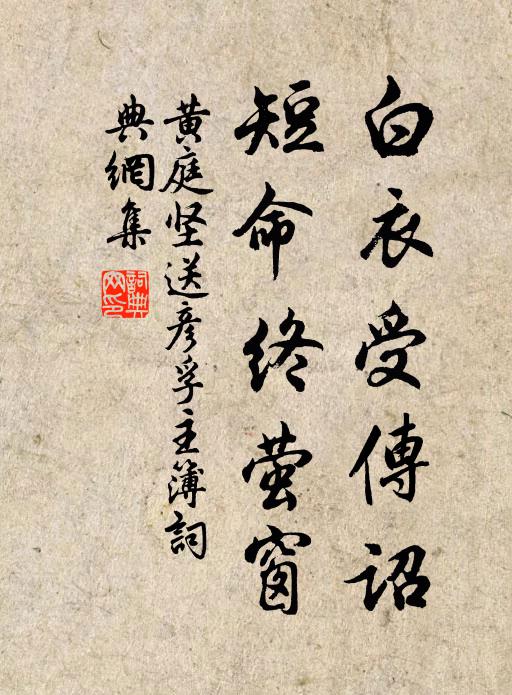 白衣受傳詔
短命終萤窗
黄庭坚送彦孚主簿詞
典網集
詞典网印